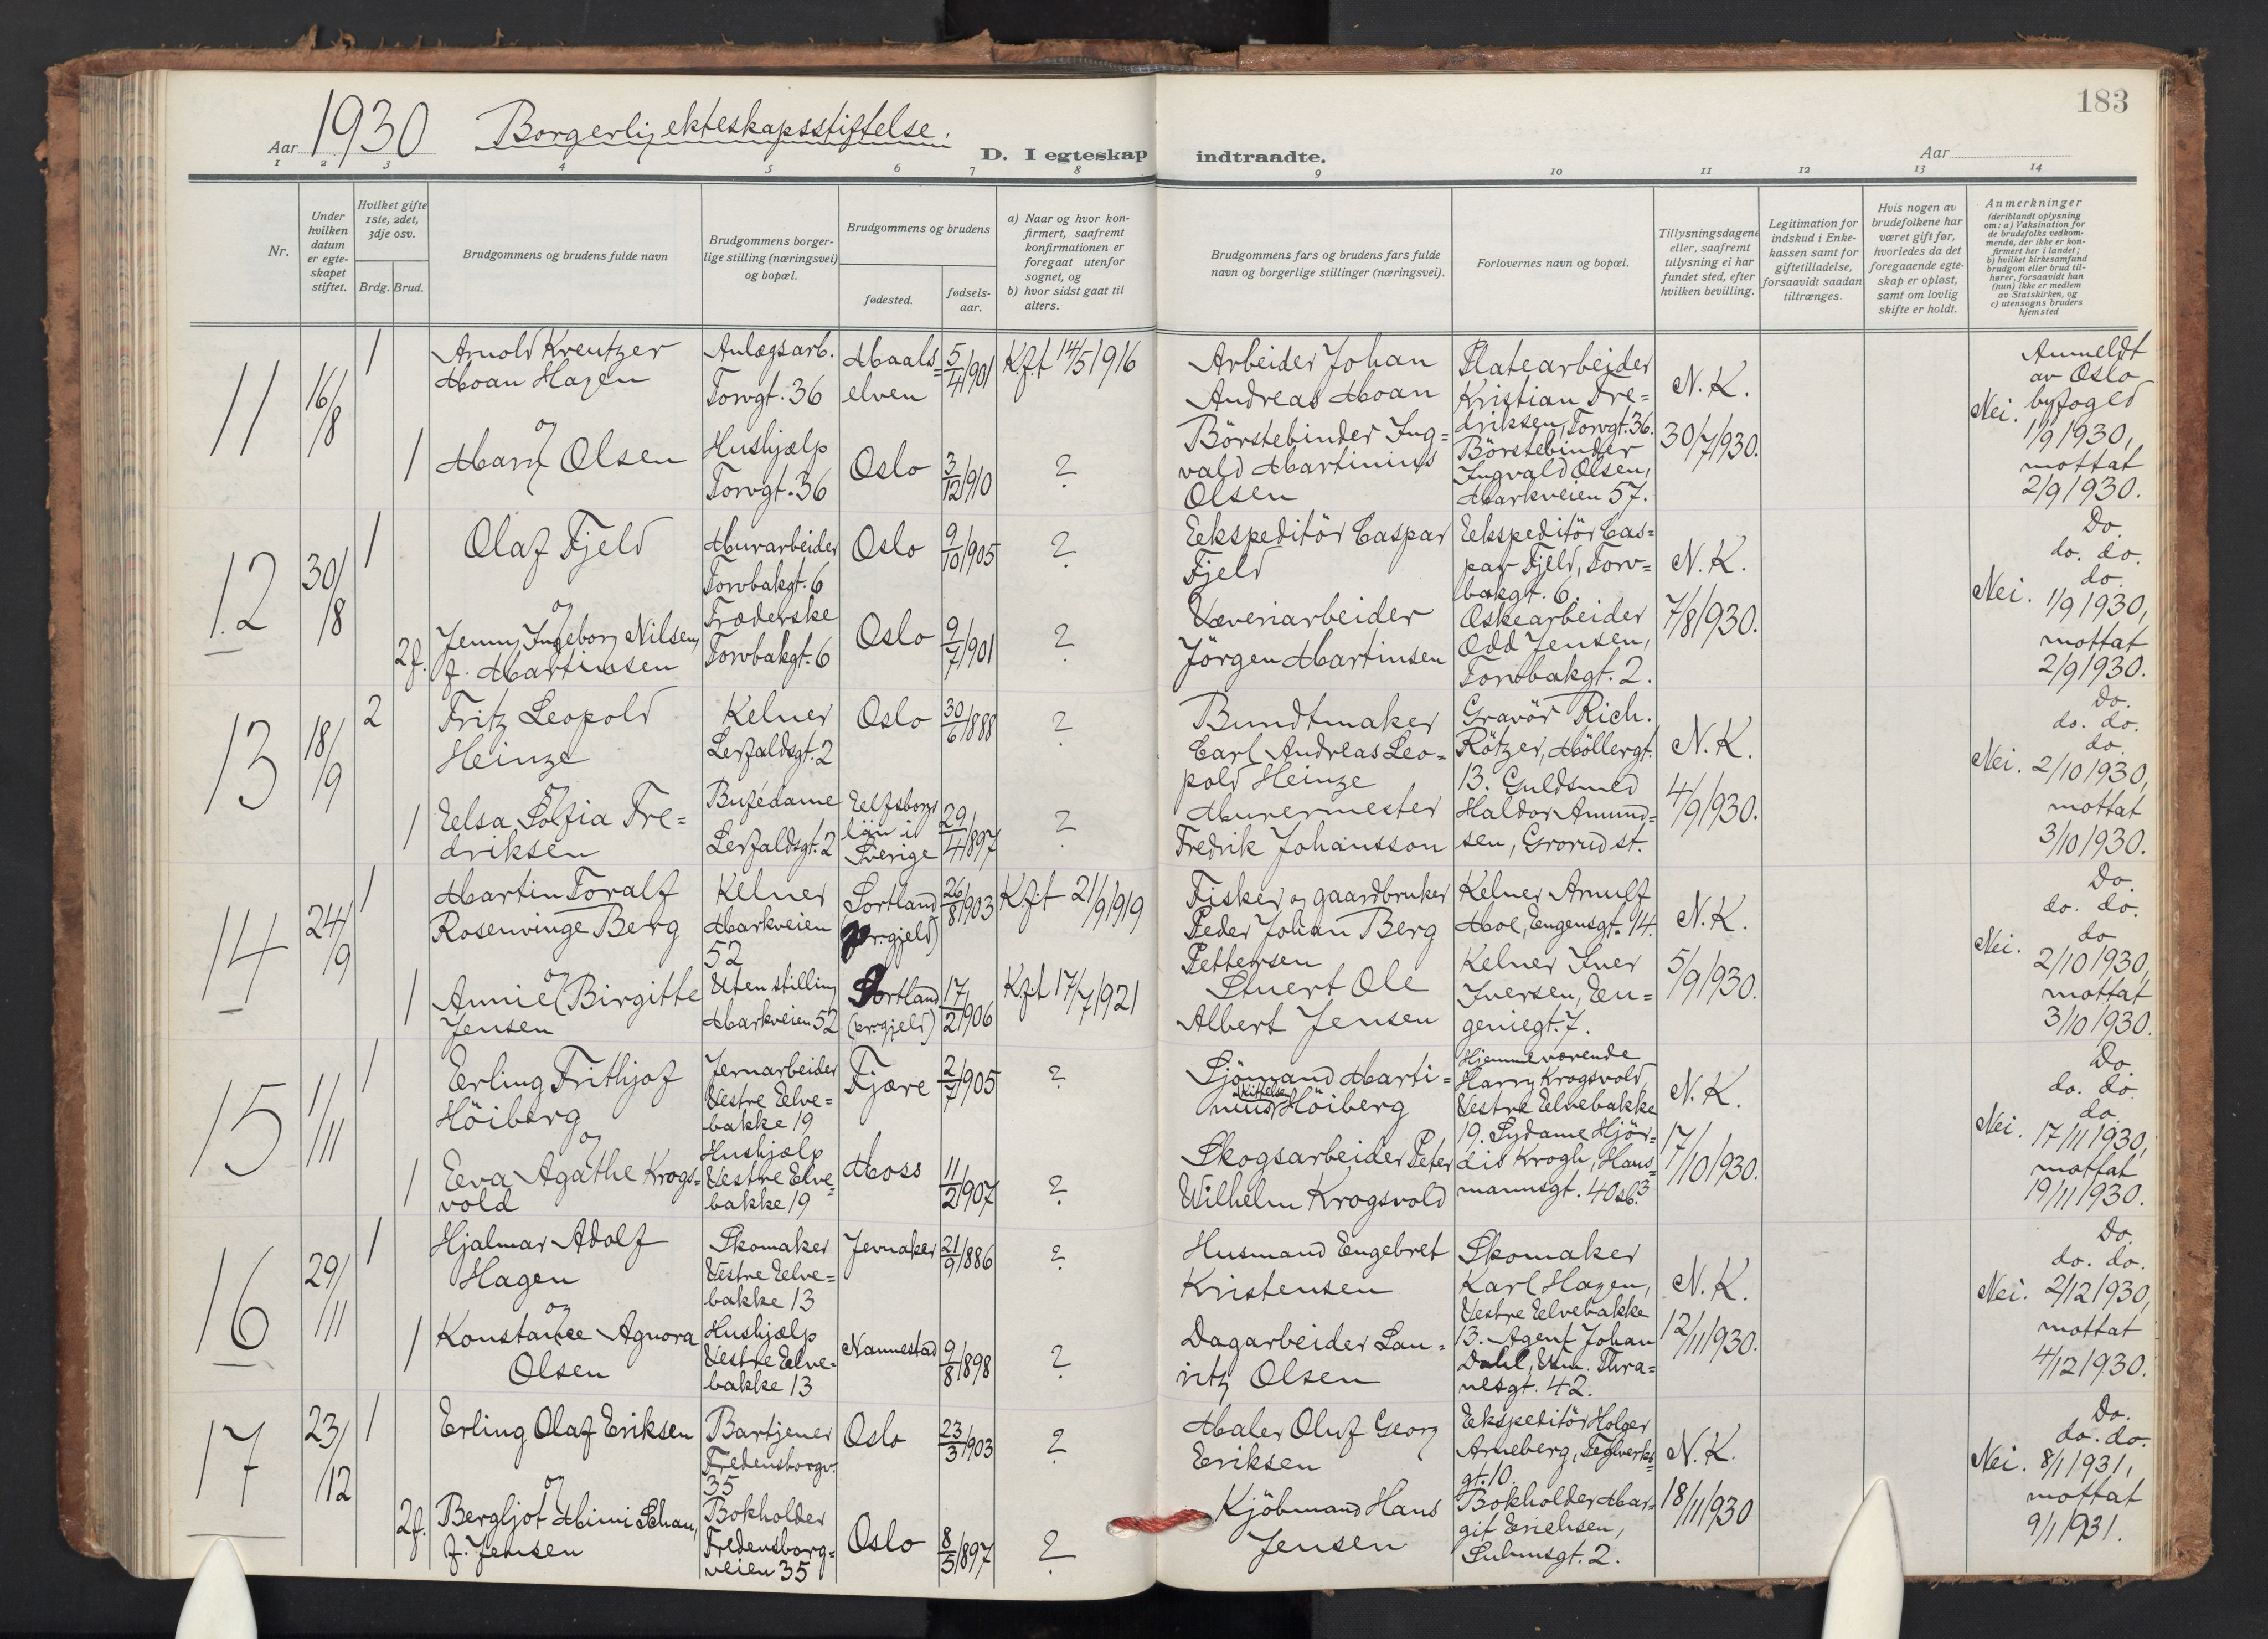 183
Aar 1930 Borgerlig ekteskapsstiftelse.
D. I egteskap indtraadte.
Aar
1 2 3 4 5 6 7 8 9 10 11 12 13 14
Nr.
Under hvilken datum er egteskapet stiftet.
Hvilket gifte 1ste, 2det, 3dje osv.
Brdg. Brud.
Brudgommens og brudens fulde navn
Brudgommens borgerlige stilling (næringsvei) og bopæl.
Brudgommens og brudens
fødested.
fødselsaar.
a) Naar og hvor konfirmert, saafremt konfirmationen er foregaat utenfor sognet, og
b) hvor sidst gaat til alters.
Brudgommens fars og brudens fars fulde navn og borgerlige stillinger (næringsvei).
Forlovernes navn og bopæl.
Tillysningsdagene eller, saafremt tillysning ei har fundet sted, efter hvilken bevilling.
Legitimation for indskud i Enkekassen samt for giftetilladelse, forsaavidt saadan tiltrænges.
Hvis nogen av brudefolkene har været gift før, hvorledes da det foregaaende egteskap er opløst, samt om lovlig skifte er holdt.
Anmerkninger (deriblandt oplysning om: a) Vaksination for de brudefolks vedkommende, der ikke er konfirmert her i landet; b) hvilket kirkesamfund brudgom eller brud tilhører, forsaavidt han (hun) ikke er medlem av Statskirken, og c) utensogns bruders hjemsted
11
16/8
1
Arnold Kreutzer
Moan Hagen
Anlægsarb.
Torvgt. 36
Maals=
elven
5/4 1901
Kft 14/5 1916
og
1
Mary Olsen
Hushjælp
Torvgt. 36
Oslo
3/12 1910
?
Arbeider Johan
Andreas Moan
Börstebinder Ing=
vald Martinius
Olsen
Platearbeider
Kristian Fre=
driksen, Torvgt. 36.
Börstebinder
Ingvald Olsen,
Markveien 57.
N. K.
30/7 1930.
Nei.
Anmeldt
av Oslo
byfoged
1/9 1930,
mottat
2/9 1930.
12
30/8
1
Olaf Fjeld
Murarbeider
Torvbakgt. 6
Oslo
9/10 1905
?
og
2 f.
Jenny Ingeborg Nilsen,
f. Martinsen
Træderske
Torvbakgt. 6
Oslo
9/7 1901
?
Eekspeditör Caspar
Fjeld
Væveriarbeider
Jörgen Martinsen
Eekspeditör Cas=
par Fjeld, Torv=
bakgt. 6.
Oskearbeider
Odd Jensen,
Torvbakgt. 2.
N. K.
7/8 1930.
Nei.
Do.
do. do.
do.
1/9 1930,
mottat
2/9 1930.
13
18/9
2
Fritz Leopold
Heinze
Kelner
Lerfaldsgt. 2
Oslo
30/6 1888
?
og
1
Eelsa Sofia Fre=
driksen
Bufédame
Lerfaldsgt. 2
Eelfsborgs
län i
Sverige
29/4 1897
?
Bundtmaker
Carl Andreas Leo=
pold Heinze
Murermester
Fredrik Johansson
Gravör Rich.
Rötzer, Möllergt.
13. Guldsmed
Haldor Amund=
sen, Grorud st.
N. K.
4/9 1930.
Nei.
Do.
do. do.
do.
2/10 1930,
mottat
3/10 1930.
14
24/9
1
Martin Toralf
Rosenvinge Berg
Kelner
Markveien
52
Sortland
(pr.gjeld)
26/8 1903
Kft 21/9 1919
og
1
Annie Birgitte
Jensen
Uten stilling
Markveien 52
Sortland
(pr.gjeld)
17/2 1906
Kft 17/7 1921
Fisker og gaardbruker
Peder Johan Berg
Pettersen
Stuert Ole
Albert Jensen
Kelner Arnulf
Moe, Eugensgt. 14.
Kelner Iver
Iversen, Eu=
geniegt. 7.
N. K.
5/9 1930.
Nei.
Do.
do. do.
do
2/10 1930,
mottat
3/10 1930.
15
1/11
1
Erling Frithjof
Höiberg
Jernarbeider
Vestre Eelve=
bakke 19
Fjære
2/7 1905
?
og
1
Eeva Agathe Krogs=
vold
Hushjælp
Vestre Elve=
bakke 19
Moss
11/2 1907
?
Sjömand Marti=
nius Kittelsen Höiberg
Skogsarbeider Peter
Wilhelm Krogsvold
Hjemmeværende
Harry Krogsvold,
Vestre Eelvebakke
19. Sydame Hjör=
dis Krogh, Haus=
mannsgt. 40 sb.3
N. K.
17/10 1930.
Nei.
Do.
do. do.
do.
17/11 1930,
mottat
19/11 1930.
16
29/11
1
Hjalmar Adolf
Hagen
Skomaker
Vestre Eelve=
bakke 13
Jevnaker
21/9 1886
?
og
1
Konstance Agnora
Olsen
Hushjælp
Vestre Eelve=
bakke 13
Nannestad
9/8 1898
?
Husmand Engebret
Kristensen
Dagarbeider Lau=
ritz Olsen
Skomaker
Karl Hagen,
Vestre Eelvebakke
13. Agent Johan
Dahl, Vm. Thra=
nesgt. 42.
N. K.
12/11 1930.
Nei.
Do.
do. do.
2/12 1930,
mottat
4/12 1930.
17
23/12
1
Erling Olaf Eriksen
Bartjener
Fredensborgv.
35
Oslo
23/3 1903
?
og
2 f.
Bergljot Mimi Schau,
f. Jensen
Bokholder
Fredensborg=
veien 35
Oslo
8/5 1897
?
Maler Oluf Georg
Eriksen
Kjöbmand Hans
Jensen
Eekspeditör Holger
Arneberg, Teglverks=
gt. 10.
Bokholder Mar=
git Erichsen,
Suhmsgt. 2.
N. K.
18/11 1930
Nei.
Do.
do. do.
8/1 1931,
mottat
9/1 1931.